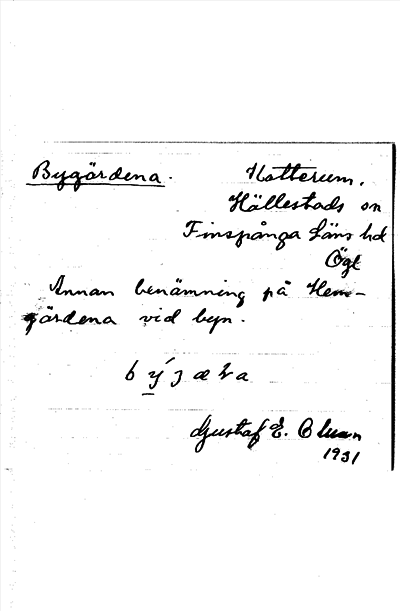 Bygärdena. Hatterum.
Hällestads sn
Finspånga Läns hd
Ögl
Annan benämning på Hem-
gärdena vid byn.
Gustaf E. Oluson
1931